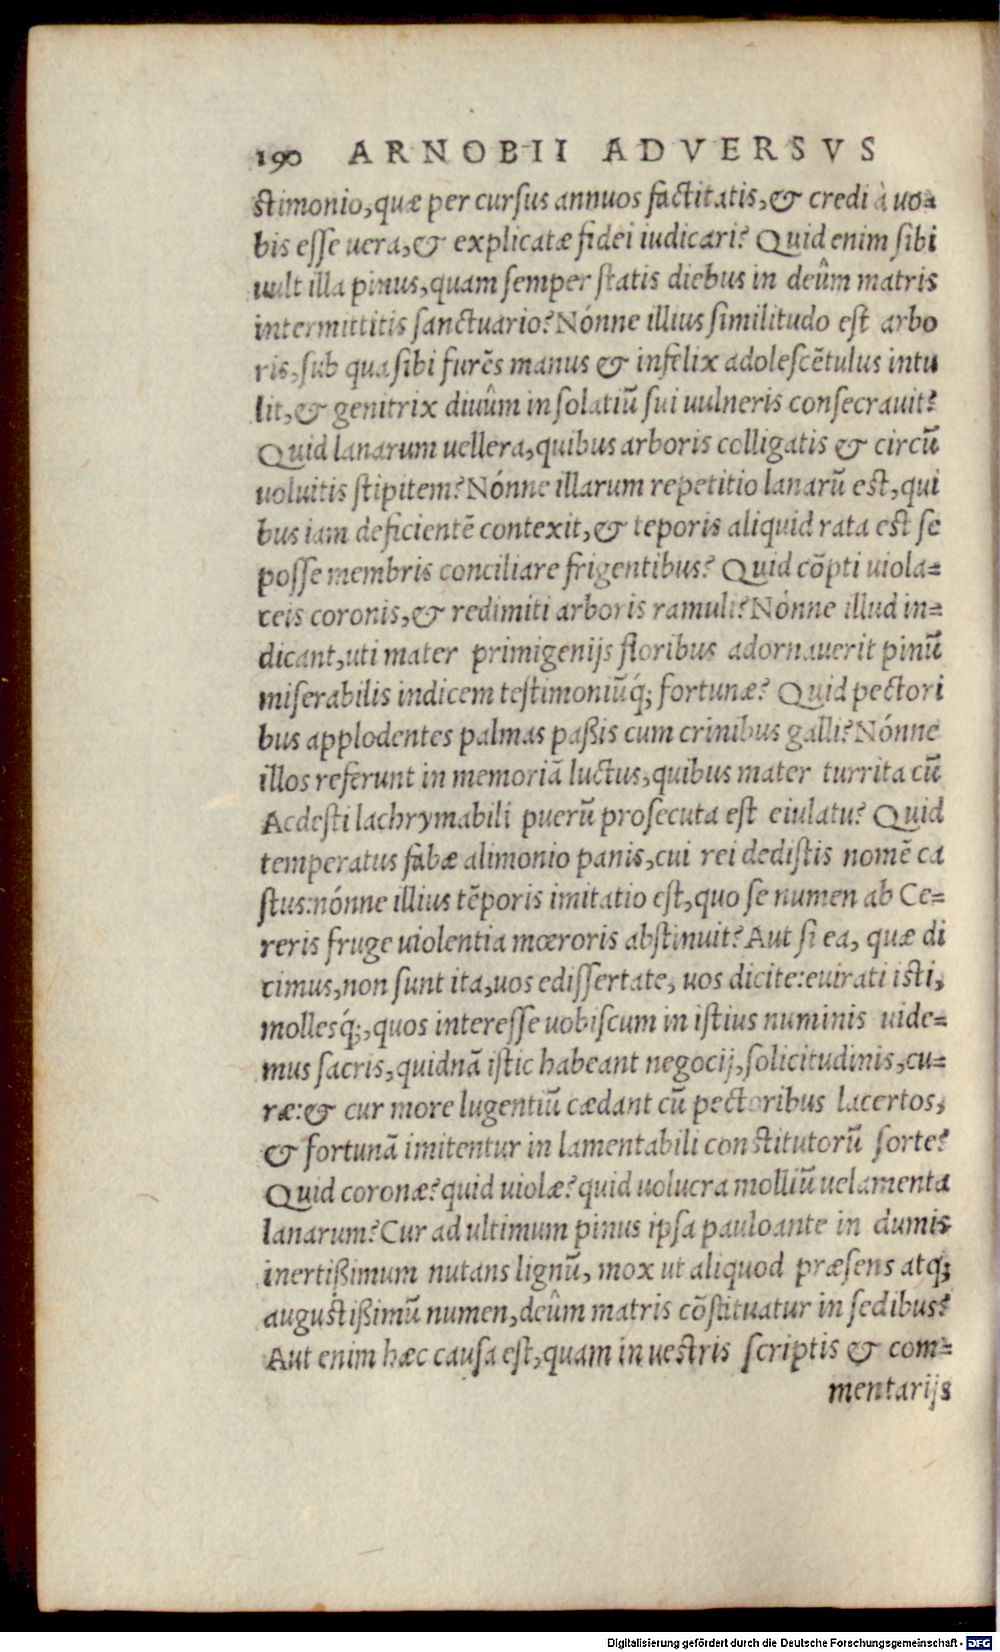 190 ARNOBII ADVERSVS
stimonio, quæ per cursus annuos factitatis, & credi à uo=
bis esse uera, & explicatæ fidei iudicari? Quid enim sibi
uult illa pinus, quam semper statis diebus in deûm matris
intermittitis sanctuario? Nónne illius similitudo est arbo
ris, sub qua sibi furēs manus & infelix adolescētulus intu
lit, & genitrix diuûm in solatiū sui uulneris consecrauit?
Quid lanarum uellera, quibus arboris colligatis & circū
uoluitis stipitem? Nónne illarum repetitio lanarū est, qui
bus iam deficientē contexit, & teporis aliquid rata est se
posse membris conciliare frigentibus? Quid cōpti uiola=
ceis coronis, & redimiti arboris ramuli? Nónne illud in=
dicant, uti mater primigenijs floribus adornauerit pinū
miserabilis indicem testimoniūq́; fortunæ? Quid pectori
bus applodentes palmas paßis cum crinibus galli? Nónne
illos referunt in memoriā luctus, quibus mater turrita cū
Acdesti lachrymabili puerū prosecuta est eiulatu? Quid
temperatus fabæ alimonio panis, cui rei dedistis nomē ca
stus: nónne illius tēporis imitatio est, quo se numen ab Ce=
reris fruge uiolentia mœroris abstinuit? Aut si ea, quæ di
cimus, non sunt ita, uos edissertate, uos dicite: euirati isti,
mollesq́;, quos interesse uobiscum in istius numinis uide=
mus sacris, quidnā istic habeant negocij, solicitudinis, cu=
ræ: & cur more lugentiū cædant cū pectoribus lacertos,
& fortunā imitentur in lamentabili constitutorū sorte?
Quid coronæ? quid uiolæ? quid uolucra molliū uelamenta
lanarum? Cur ad ultimum pinus ipsa pauloante in dumis
inertißimum nutans lignū, mox ut aliquod præsens atq;
augustißimū numen, deûm matris cōstituatur in sedibus?
Aut enim hæc causa est, quam in uestris scriptis & com=
mentarijs
Digitalisierung gefördert durch die Deutsche Forschungsgemeinschaft - DFG